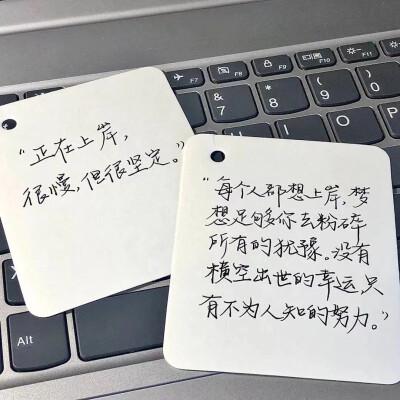 “正在上岸，
很慢，但很坚定。”
“每个人都想上岸，梦
想足够你去粉碎
所有的犹豫。没有
横空出世的幸运，只
有不为人知的努力。”
F7
F8
F9
F10
F11
F12
&
7
*
8
(
9
)
0
Alt